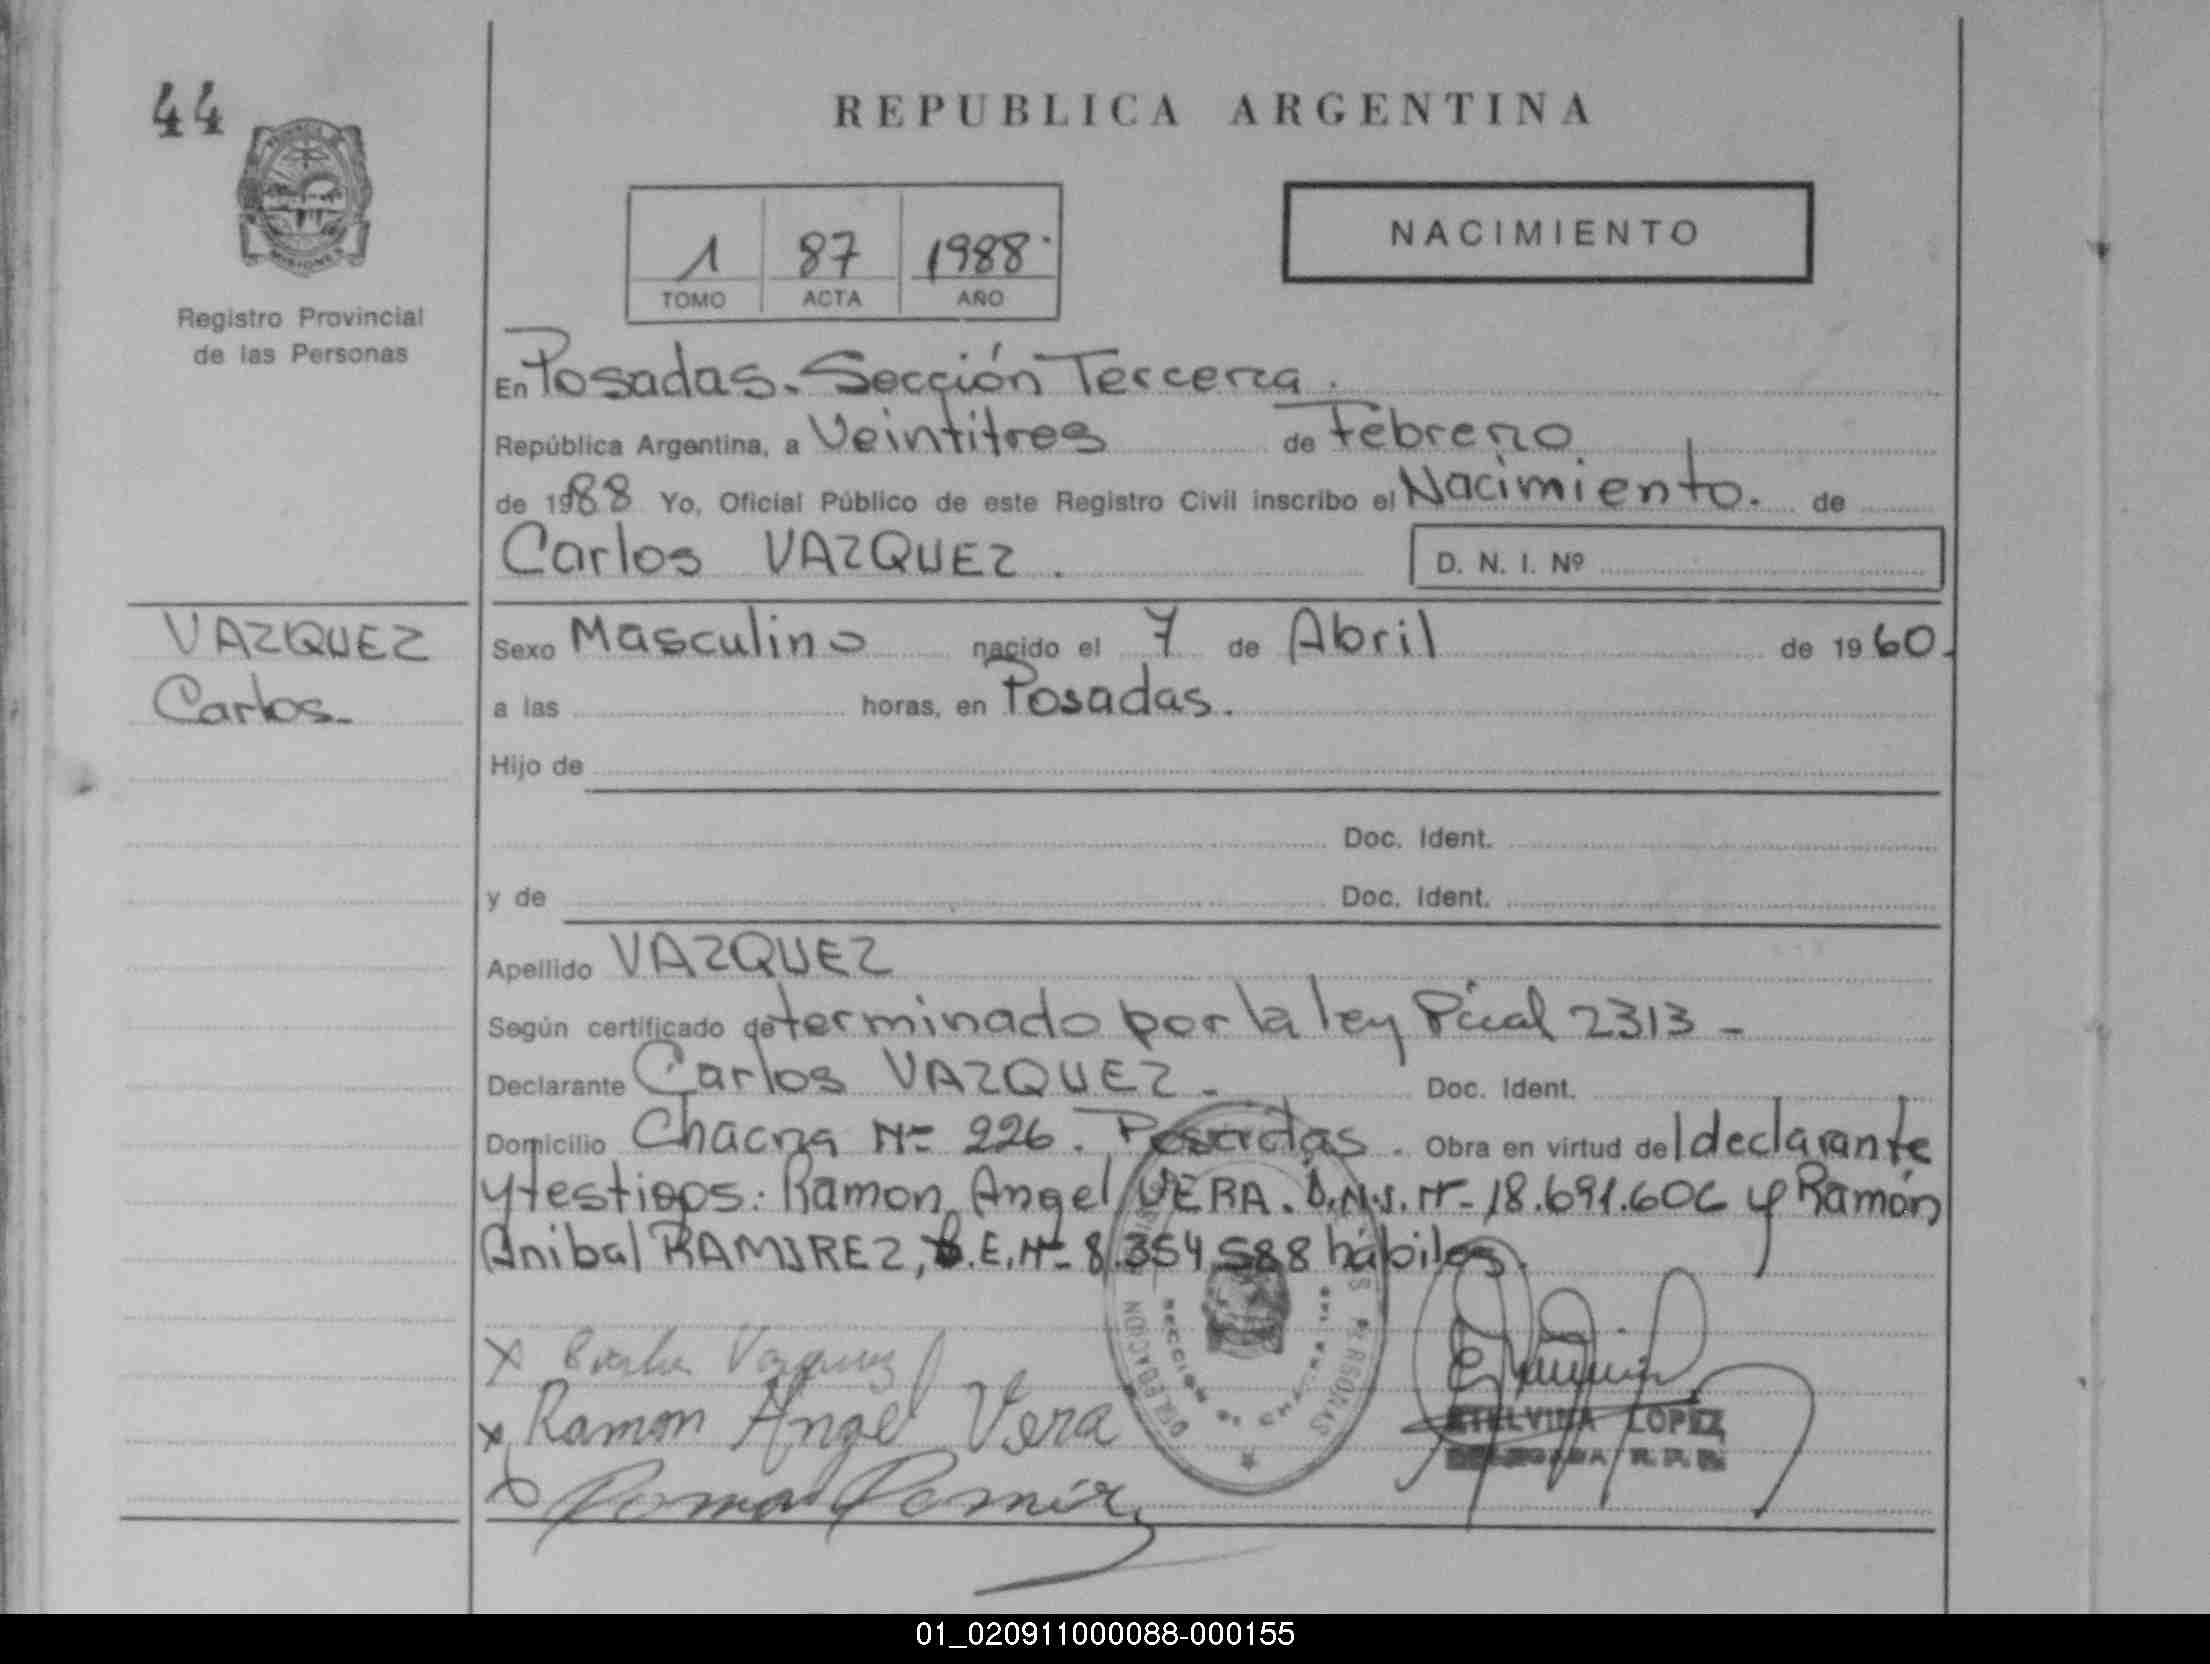 44
REPUBLICA ARGENTINA
MISIONES
Registro Provincial
de las Personas
1 87 1988
TOMO ACTA AÑO
NACIMIENTO
En Posadas. Sección Tercera.
República Argentina, a Veintitres de Febrero
de 1988 Yo, Oficial Público de este Registro Civil inscribo el Nacimiento. de
Carlos VAZQUEZ. D. N. I. Nº
VAZQUEZ
Carlos.
Sexo Masculino nacido el 7 de Abril de 1960.
a las horas, en Posadas.
Hijo de
Doc. Ident.
y de Doc. Ident.
Apellido VAZQUEZ
Según certificado determinado por la ley Pcial 2313 -
Declarante Carlos VAZQUEZ. Doc. Ident.
Domicilio Chacra Nº 226. Posadas. Obra en virtud del declarante
y testigos: Ramon Angel VERA. D.N.I. Nº 18.691.606 y Ramón
Anibal RAMIREZ, E. Nº 8.354.588 hábiles.
x Vazquez
x Ramon Angel Vera
ETELVINA LOPEZ
DELEGADA R. P. P.
DELEGACION
SECCION
PERSONAS
01_020911000088-000155